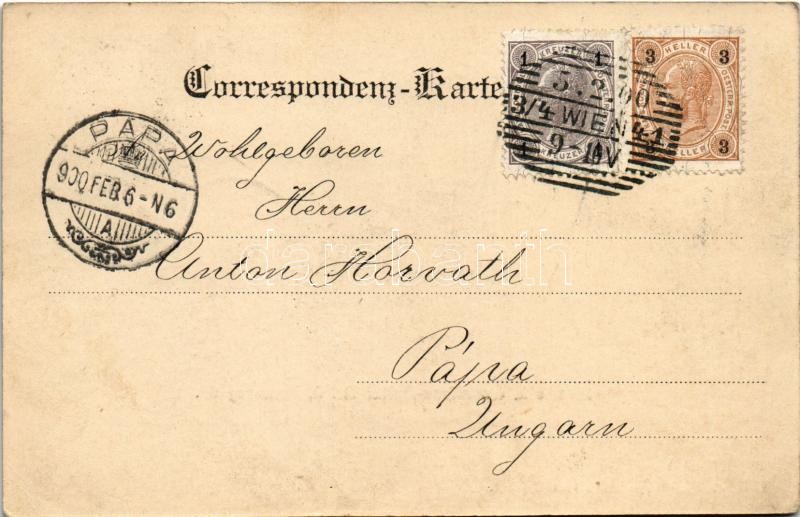 Correspondenz-Karte
1 KREUZER 1
3 HELLER 3
3 HELLER 3
5.2.00
3/4 WIEN 41
9- V
PÁPA
900 FEB. 6 - N6
A
Wohlgeboren
Herrn
Anton Horvath
Pápa
Ungarn
darabanth